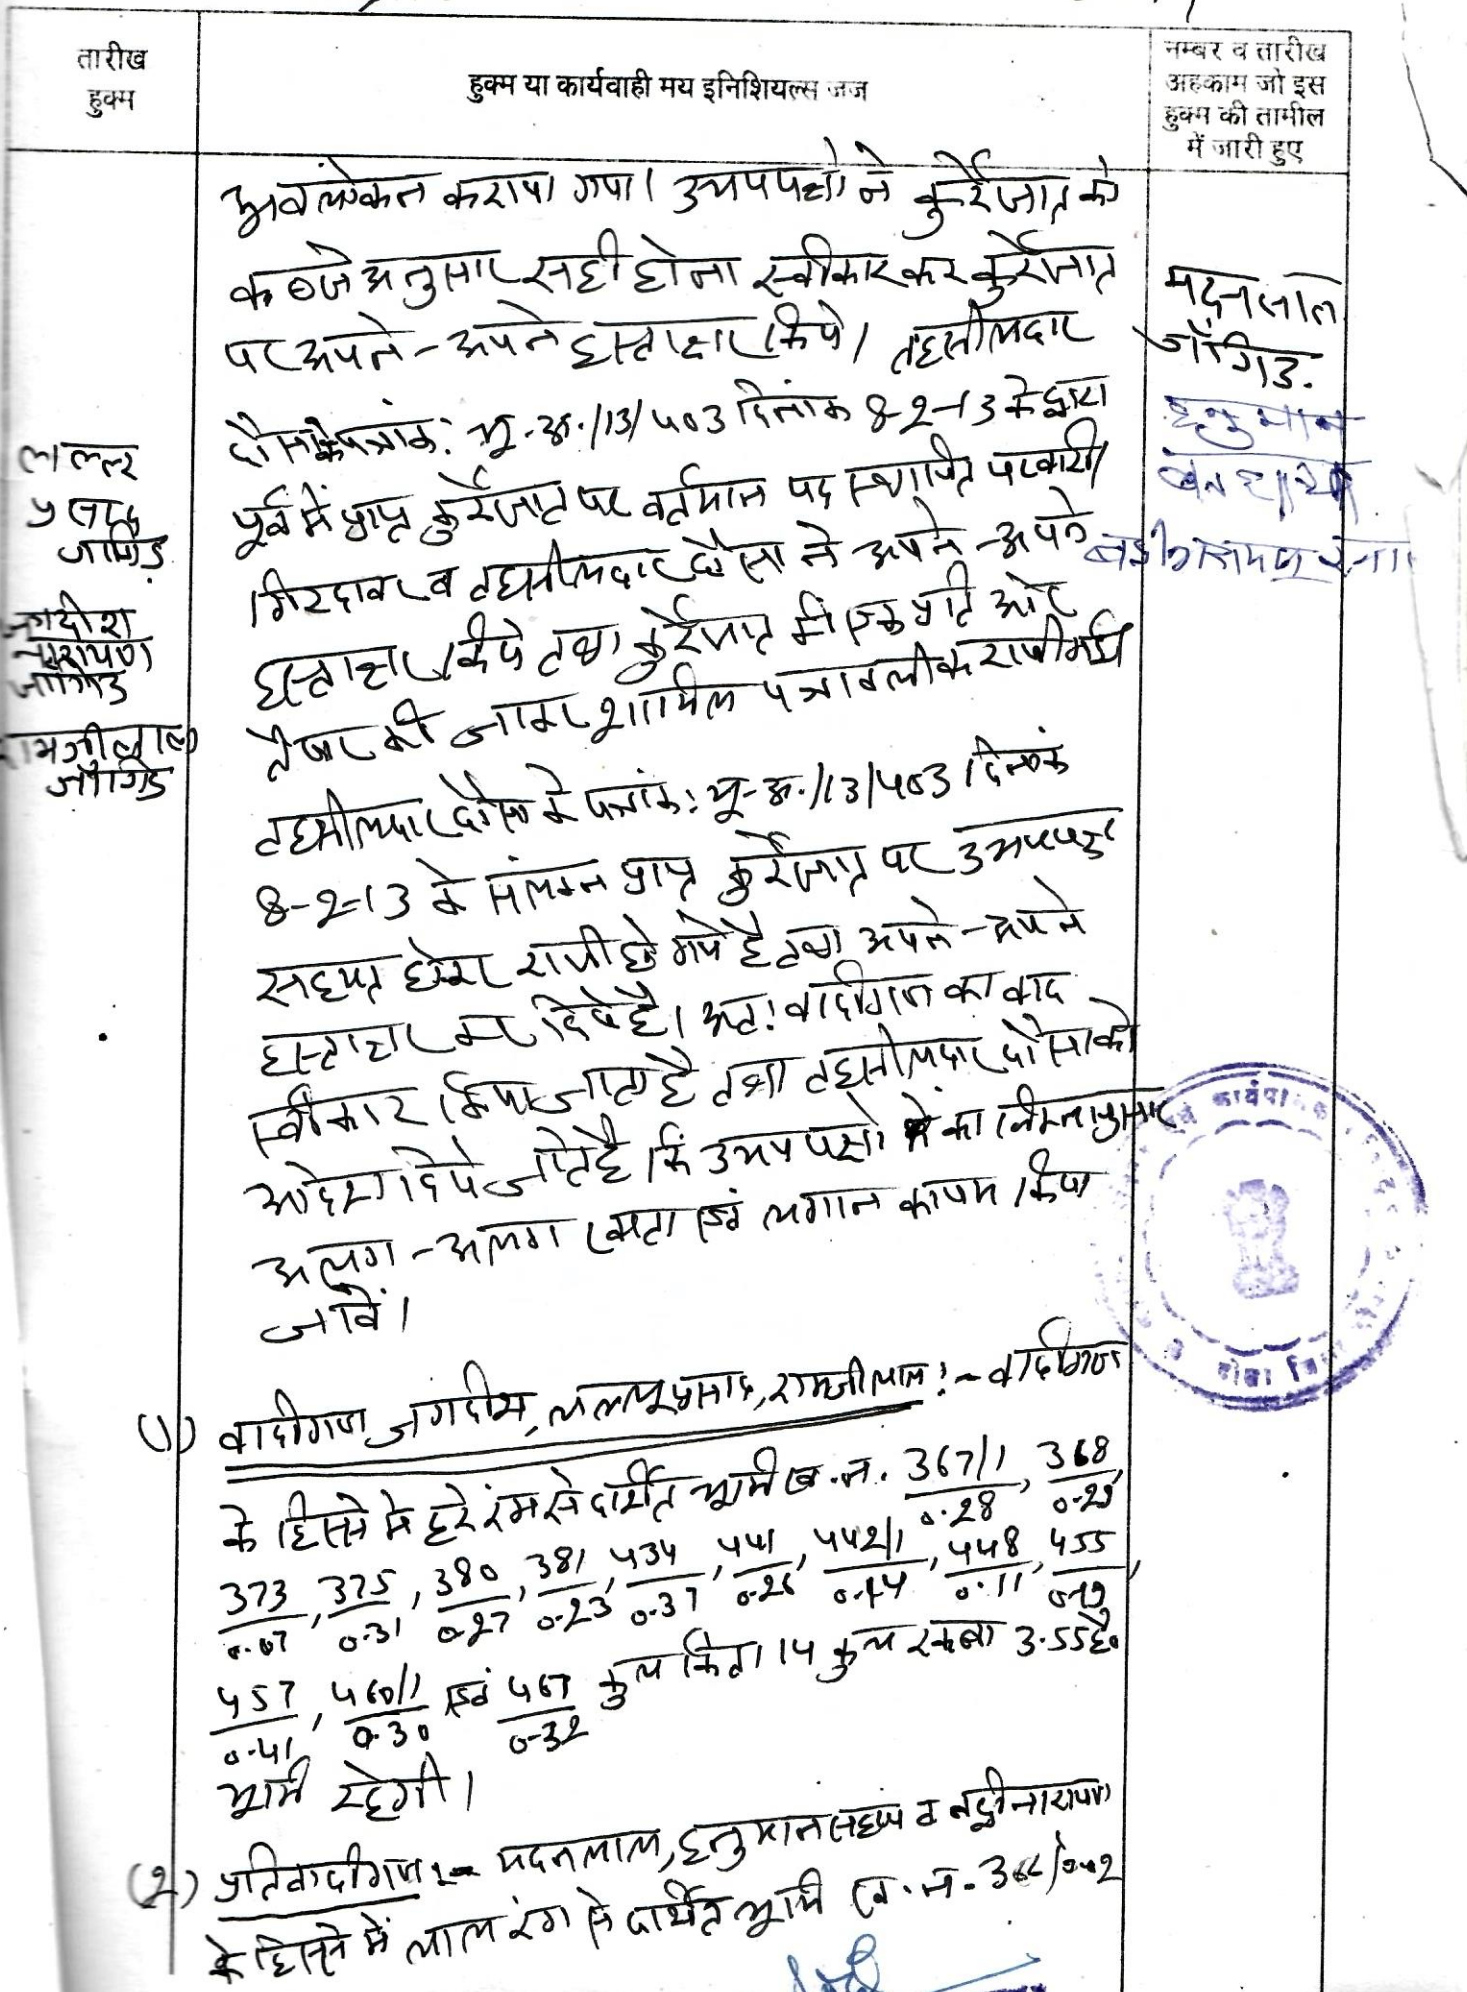 तारीख
हुक्म
हुक्म या कार्यवाही मय इनिशियल्स जज
नम्बर व तारीख
अहकाम जो इस
हुक्म की तामील
में जारी हुए
अवलोकन कराया गया। उभयपक्षो ने कुर्रेजात को
कब्जे अनुसार सही होना स्वीकार कर कुर्रेजात
पर अपने-अपने हस्ताक्षर किये। तहसीलदार
दौसा के पत्रांक: भू.अ./13/403 दिनांक 8-2-13 के द्वारा
पूर्व में प्राप्त कुर्रेजात पर वर्तमान पद स्थापित पटवारी
गिरदावर व तहसीलदार दौसा ने अपने-अपने
हस्ताक्षर किये तथा कुर्रेजात की एक प्रति और
तैयार की जाकर शामिल पत्रावली
तहसीलदार दौसा के पत्रांक: भू-अ./13/403 दिनांक
8-2-13 के संलग्न प्राप्त कुर्रेजात पर उभयपक्ष
सहमत होकर राजी हो गये है तथा अपने-अपने
हस्ताक्षर कर दिये है। अत: वादीगण का वाद
स्वीकार किया जाता है तथा तहसीलदार दौसा को
आदेश दिये जाते है कि उभय पक्षो का निम्नानुसार
अलग-अलग खाता एवं लगान कायम किया
जावें।
(1) वादीगण जगदीश, लल्लूप्रसाद, रामजीलाल :- वादीगण
के हिस्से मे हरे रंग से दर्शित भूमि ख.न. 367/1, 368
0.28 0-29
373, 375, 380, 381, 434, 441, 442/1, 448, 455,
0.07 0.31 0.27 0-23 0.37 0.26 0.14 0.11 0.19
457, 460/1 एवं 467 कुल किता 14 कुल रकबा 3.55 है0
0.41 0.30 0-32
भूमि रहेगी।
(2) प्रतिवादीगण :- मदनलाल, हनुमान सहाय व बद्रीनारायण
के हिस्से में लाल रंग से दर्शित भूमि ख.न.
लल्लू
प्रसाद
जांगिड़
जगदीश
नारायण
जांगिड
रामजीलाल
जांगिड
मदनलाल
जाँगिड.
हनुमान